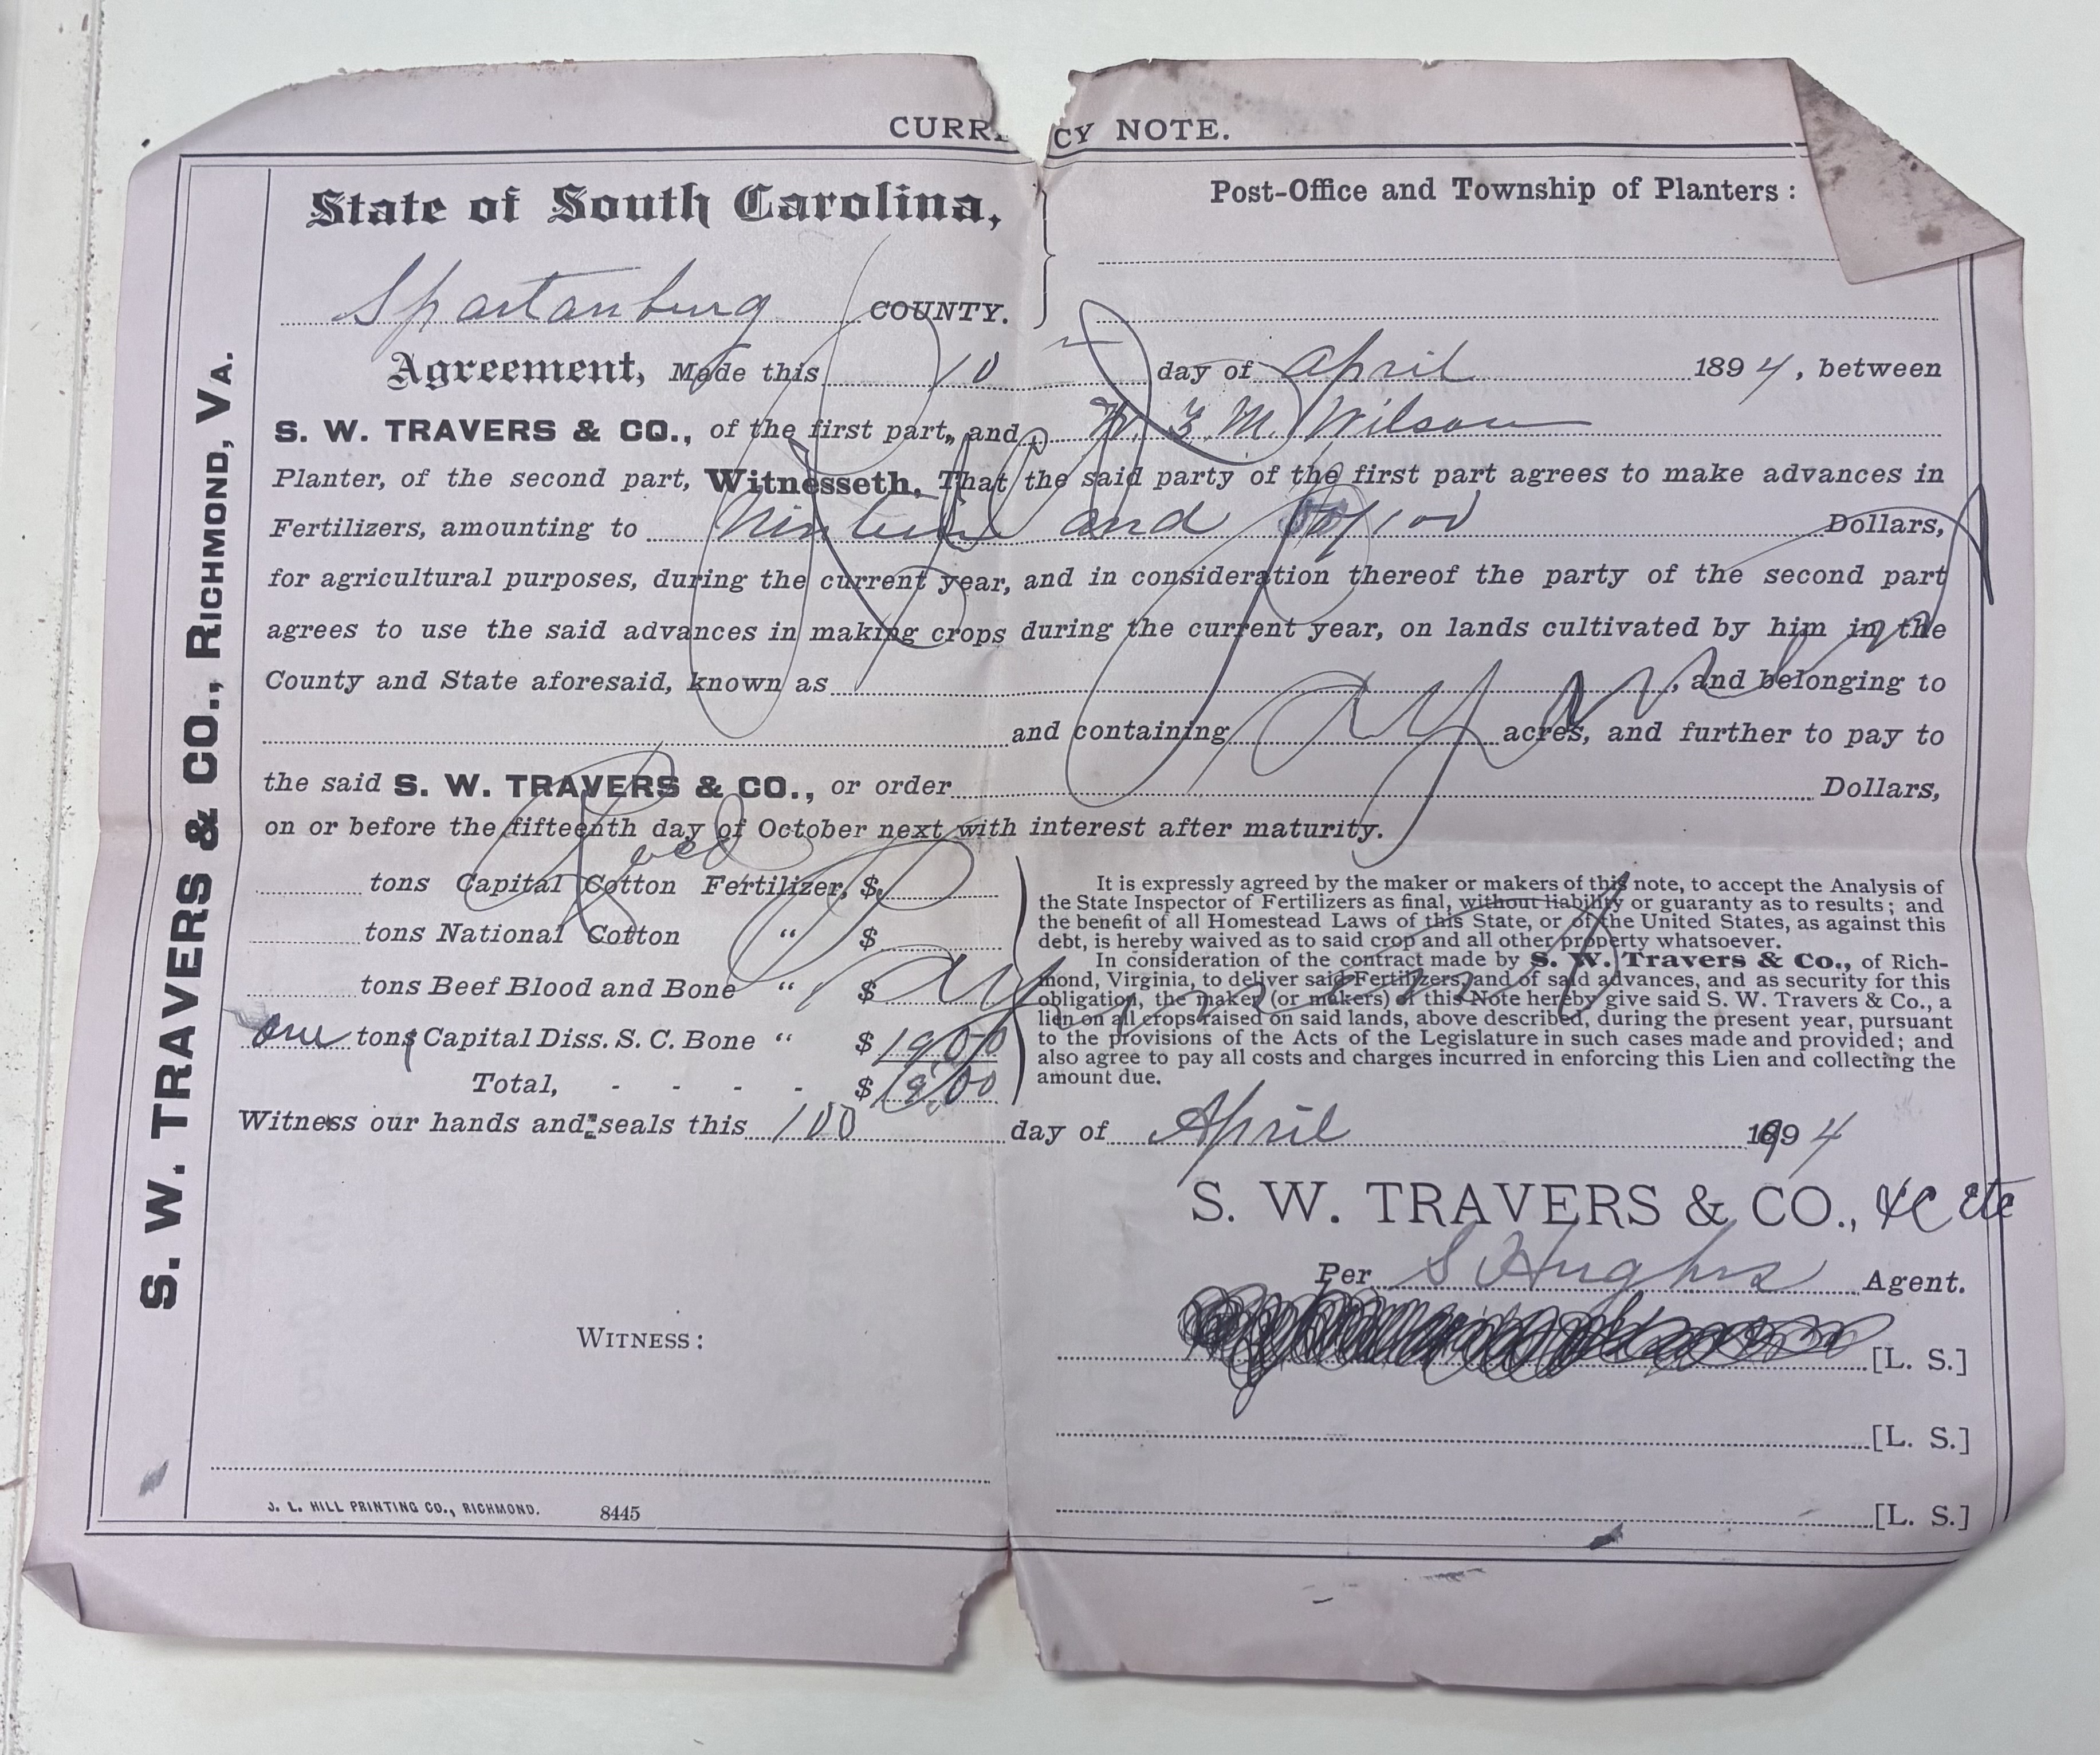 CURR CY NOTE.
S. W. TRAVERS & CO., RICHMOND, VA.
State of South Carolina,
Spartanburg COUNTY.
Post-Office and Township of Planters:
Agreement, Made this 10 day of April 1894, between
S. W. TRAVERS & CO., of the first part, and M. Wilson
Planter, of the second part, Witnesseth, That the said party of the first part agrees to make advances in
Fertilizers, amounting to and /100 Dollars,
for agricultural purposes, during the current year, and in consideration thereof the party of the second part
agrees to use the said advances in making crops during the current year, on lands cultivated by him in the
County and State aforesaid, known as , and belonging to
and containing acres, and further to pay to
the said S. W. TRAVERS & CO., or order Dollars,
on or before the fifteenth day of October next with interest after maturity.
tons Capital Cotton Fertilizer, $
tons National Cotton " $
tons Beef Blood and Bone " $
one tons Capital Diss. S. C. Bone " $ 19.00
Total, - - - - $ 19.00
It is expressly agreed by the maker or makers of this note, to accept the Analysis of
the State Inspector of Fertilizers as final, without liability or guaranty as to results; and
the benefit of all Homestead Laws of this State, or of the United States, as against this
debt, is hereby waived as to said crop and all other property whatsoever.
In consideration of the contract made by S. W. Travers & Co., of Rich-
mond, Virginia, to deliver said Fertilizers, and of said advances, and as security for this
obligation, the maker (or makers) of this Note hereby give said S. W. Travers & Co., a
lien on all crops raised on said lands, above described, during the present year, pursuant
to the provisions of the Acts of the Legislature in such cases made and provided; and
also agree to pay all costs and charges incurred in enforcing this Lien and collecting the
amount due.
Witness our hands and seals this day of April 1894
S. W. TRAVERS & CO.,
Per S Hughes Agent.
[L. S.]
WITNESS:
[L. S.]
[L. S.]
J. L. HILL PRINTING CO., RICHMOND. 8445